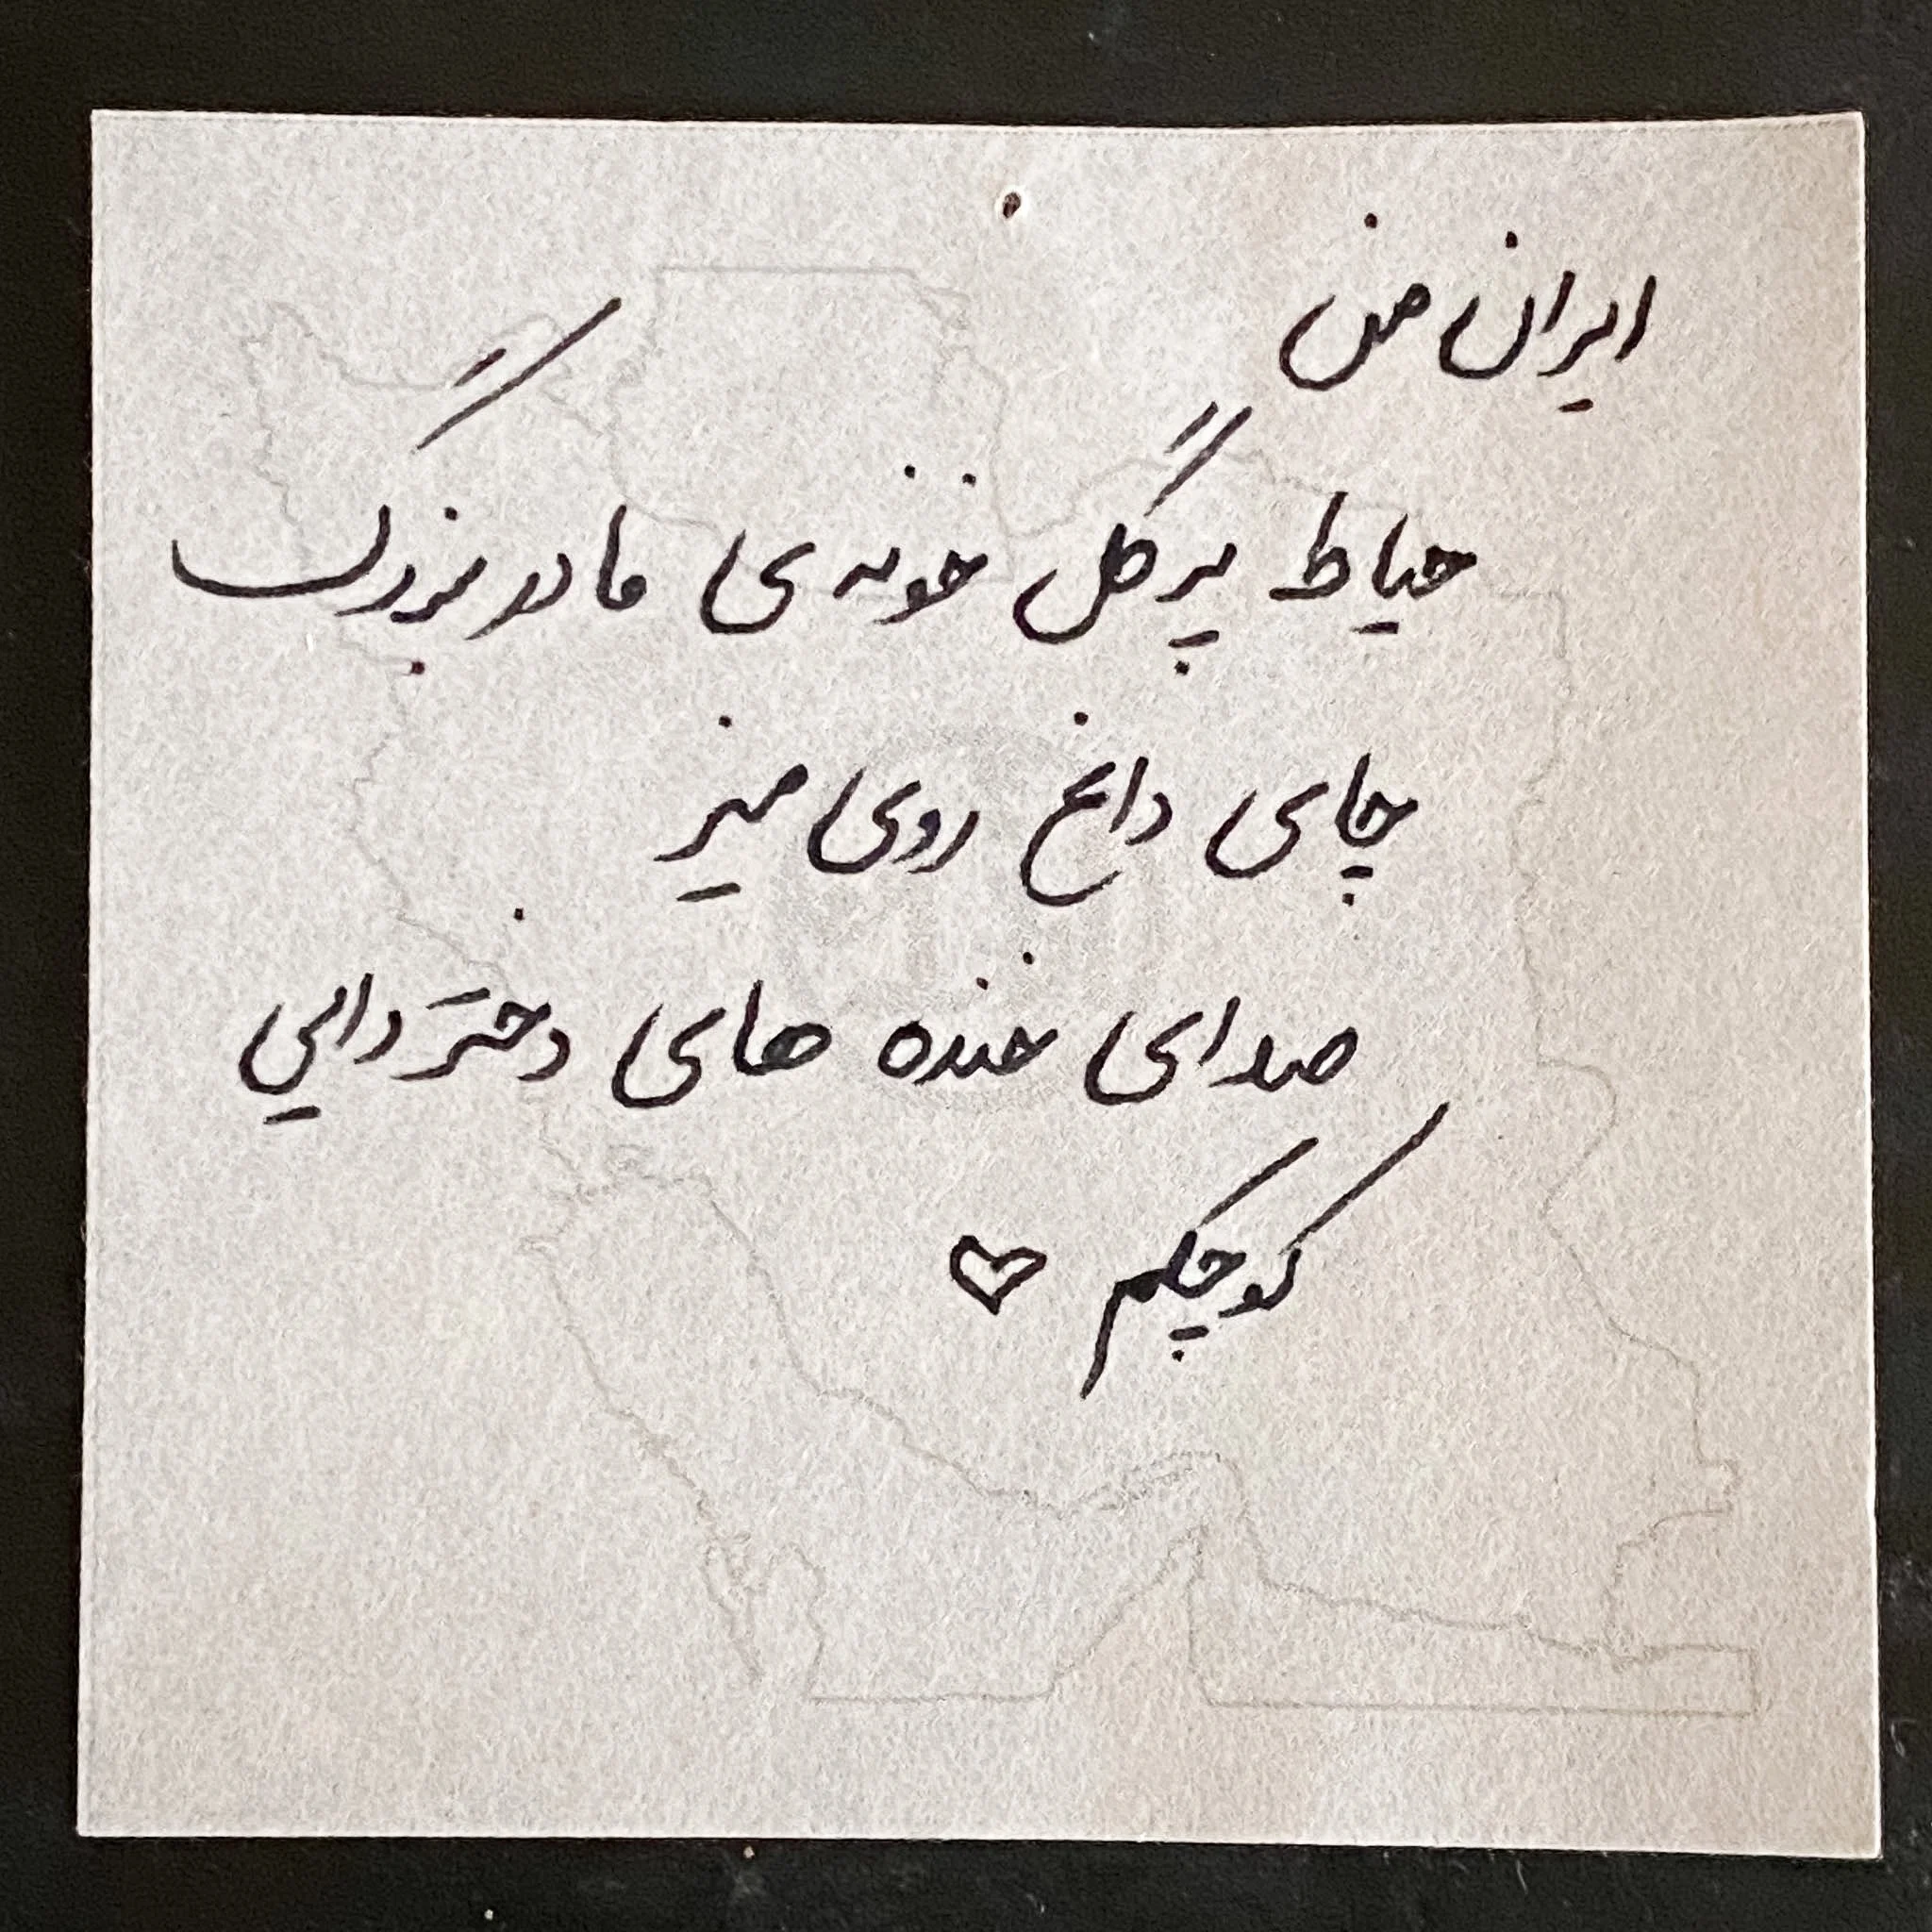 ایران من
حیاط پر گل خونه ی مادربزرگ
چای داغ روی میز
صدای خنده های دختر دایی
کوچکم ♡